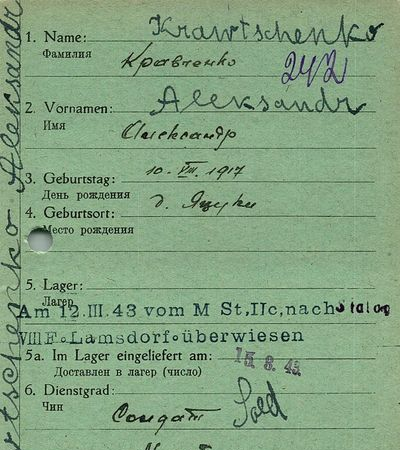 Krawtschenko Aleksandr
1. Name: Krawtschenko
Фамилия Кравченко
242
2. Vornamen: Aleksandr
Имя Александр
3. Geburtstag: 10. VIII. 1917
День рождения
4. Geburtsort: д. Яцуки
Место рождения
5. Lager:
Лагер
Am 12.III.43 vom M St,IIc,nach Stalag
VIII F.Lamsdorf.überwiesen
5a. Im Lager eingeliefert am: 15. 3. 43.
Доставлен в лагер (число)
6. Dienstgrad: Sold
Чин Солдат